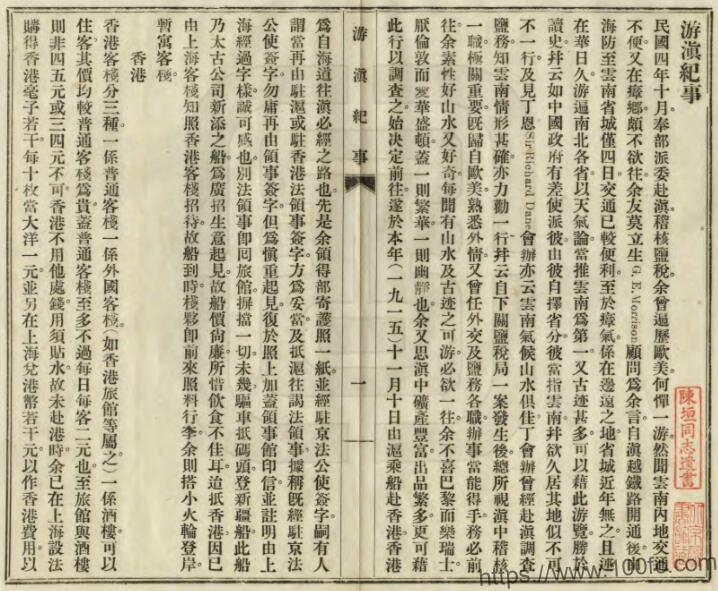 游滇紀事
民國四年十月奉部派委赴滇稽核鹽稅。余曾遍歷歐美何憚一游然聞雲南內地交通
不便又在瘴鄉頗不欲往余友莫立生 G. E. Morrison 顧問爲余言自滇越鐵路開通後由
海防至雲南省城僅四日交通已較便利至於瘴氣係在邊遠之地省城近年無之且遜
在華日久游遍南北各省以天氣論當推雲南爲第一又古蹟甚多可以藉此游覽勝於
讀史幷云如中國政府有差使派彼由彼自擇省分彼當指雲南幷欲久居其地似不可
不一行及見丁恩 Sir Richard Dane 會辦亦云雲南氣候山水俱佳丁會辦曾經赴滇調查
鹽務知雲南情形甚確亦力勸一行幷云自下關鹽稅局一案發生後總所視滇中稽核
一職極關重要旣歸自歐美熟悉外情又曾任外交及鹽務各職辦事當能得手務必前
往余素性好山水又好奇每聞有山水及古迹之可游必欲一往余不喜巴黎而樂瑞士
厭倫敦而愛華盛頓蓋一則繁華一則幽靜也余又思滇中礦產豐富出品繁多更可藉
此行以調查之始決定前往遂於本年(一九一五)十一月十日由滬乘船赴香港香港
游滇紀事
一
爲自海道往滇必經之路也先是余領得部寄護照一紙並經駐京法公使簽字嗣有人
謂當再由駐滬或駐香港法領事簽字方爲妥當及抵滬往謁法領事據稱旣經駐京法
公使簽字勿庸再由領事簽字但爲愼重起見復於照上加蓋領事館印信並註明由上
海經過字樣誠可感也別法領事卽囘旅館摒擋一切未幾驅車抵碼頭登新疆船此船
乃太古公司新添之船爲廣招生意起見故船價尙廉所惜飮食不佳耳迨抵香港因已
由上海客棧知照香港客棧招待故船到時棧夥卽前來照料行李余則搭小火輪登岸
暫寓客棧。
香港
香港客棧分三種。一係普通客棧一係外國客棧(如香港旅館等屬之)一係酒樓可以
住客其價均較普通客棧爲貴蓋普通客棧至多不過每日每客二元也至旅館與酒樓
則非四五元或三四元不可香港不用他處錢用須貼水故未赴港時余已在上海設法
購得香港毫子若干每十枚當大洋一元並另在上海兌港幣若干元以作香港費用以
陳垣同志遺書